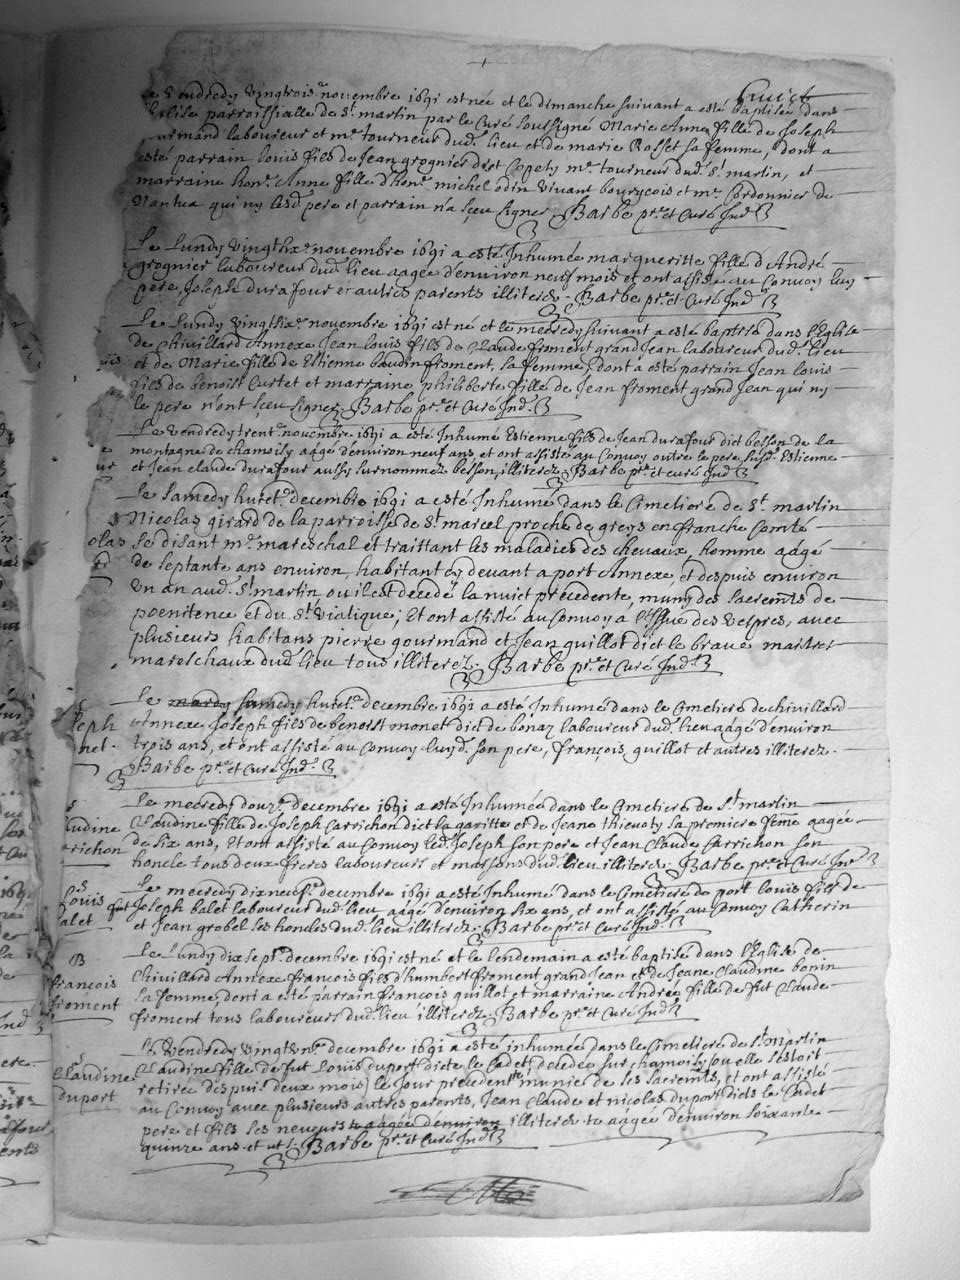 huict
Le Vendredy vingtrois.e novembre 1691 est née et le dimanche suivant a esté baptisée dans
l'Eglise parroissialle de S.t martin par le Curé soussigné Marie Anne fille de Joseph
laboureur et m.e tourneur dud. lieu et de marie Rosset sa femme, dont a
esté parrain Louis fils de Jean grognier dict Copety m.e tourneur dud. S.t martin, et
marraine hon.e Anne fille d'hon.e michel odin vivant bourgeois et m.e Cordonnier de
Nantua qui ny lesd. pere et parrain n'a sceu signer. Barbe p.re et Curé Ind.
Le Lundy vingtsix.e novembre 1691 a esté Inhumée margueritte fille d'André
grognier laboureur dud. lieu aagée d'environ neuf mois et ont assisté au Convoy luy
pere, Joseph durafour et autres parents illiterez. Barbe p.re et Curé Ind.
Le Lundy vingtsix.e novembre 1691 est né et le mecredy suivant a esté baptisé dans l'Eglise
de Chivillard Annexe Jean Louis fils de Claude froment grand Jean laboureur dud. lieu
et de Marie fille de Estienne baudin froment, sa femme, dont a esté parrain Jean Louis
fils de benoist Curtet et marraine philiberte fille de Jean froment grand Jean qui ny
le pere n'ont sceu signer. Barbe p.re et Curé Ind.
Le Vendredy trent.e novembre 1691 a esté Inhumé Estienne fils de Jean durafour dict besson de la
montagne de chamoisy aagé d'environ neuf ans et ont assisté au Convoy outre le pere susd. Estienne
et Jean claude durafour aussy surnommez besson, illiterez. Barbe p.re et curé Ind.
Le Samedy huict.e decembre 1691 a esté Inhumé dans le Cimetiere de S.t martin
Nicolas girard de la parroisse de S.t marcel proche de greys en franche Comté
olas se disant m.e mareschal et traittant les maladies des chevaux, homme aagé
de septante ans environ, habitant cy devant a port Annexe, et despuis environ
un an aud. S.t martin ou il est decedé la nuict precedente, muny des sacrem.ts de
poenitence et du S.t Viatique; Et ont assisté au Convoy a l'Issue des Vespres, avec
plusieurs habitans pierre gourmand et Jean quillot dict le brave maistres
mareschaux dud. lieu tous illiterez. Barbe p.re et Curé Ind.
Le mardy samedy huict.e decembre 1691 a esté Inhumé dans le Cimetiere de chivillard
seph Annexe Joseph fils de benoist monet dict de bonaz laboureur dud. lieu aagé d'environ
net. trois ans, et ont assisté au Convoy luyd. son pere, françois quillot et autres illiterez.
Barbe p.re et Curé Ind.
Le mecredy douz.e decembre 1691 a esté Inhumée dans le Cimetiere de S.t martin
audine Claudine fille de Joseph Carrichon dict la garitte et de Jeane thievoty sa premiere feme aagée
arrichon de six ans, Et ont assisté au Convoy led. Joseph son pere et Jean Claude Carrichon son
honcle tous deux freres laboureurs et massons dud. lieu illiterez. Barbe p.re et Curé Ind.
S
Le mecredy dixneuf.e decembre 1691 a esté Inhumé dans le Cimetiere de port louis fils de
Louis balet fut Joseph balet laboureur dud. lieu, aagé d'environ six ans, et ont assisté au Convoy Catherin
et Jean grobel ses honcles dud. lieu illiterez. Barbe p.re et Curé Ind.
B
Le Lundy dixsept.e decembre 1691 est né et le lendemain a esté baptisé dans l'Eglise de
françois Chivillard Annexe françois fils d'humbert froment grand Jean et de Jeane Claudine bonin
froment sa femme, dont a esté parrain françois quillot et marraine Andrée fille de fut Claude
froment tous laboureurs dud. lieu illiterez. Barbe p.re et Curé Ind.
S
Le Vendredy vingtun.e decembre 1691 a esté inhumée dans le Cimetiere de S.t Martin
Claudine Claudine fille de fut Louis duport dicte le Cadet, decedée sur chamoisy (ou elle s'estoit
duport retirée despuis deux mois) le jour precedent munie de ses sacrem.ts, et ont assisté
au Convoy avec plusieurs autres parents, Jean Claude et nicolas duport dicts le Cadet
pere et fils ses neveurs aagée d'environ illiterez aagée d'environ soixante
quinze ans et ut s. Barbe p.re et Curé Ind.